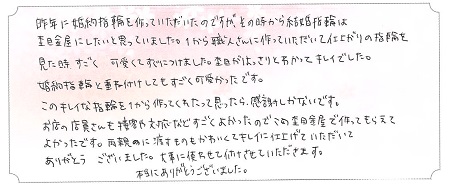 昨年に婚約指輪を作っていただいたのですが、その時から結婚指輪は
杢目金屋にしたいと思っていました。1から職人さんに作っていただいて仕上がりの指輪を
見た時すごく 可愛くてすぐにつけました。杢目がはっきりとわかってキレイでした。
婚約指輪と重ね付けしてもすごく可愛かったです。
このキレイな指輪を1から作ってくれたって思ったら、感謝しかないです。
お店の店員さんも接客や対応などすごくよかったのでこの杢目金屋で作ってもらえて
よかったです。両親のに渡すものもかわいくてキレイに仕上げていただいて
ありがとう ございました。大事に使わせて付けさせていただきます。
本当にありがとうございました。